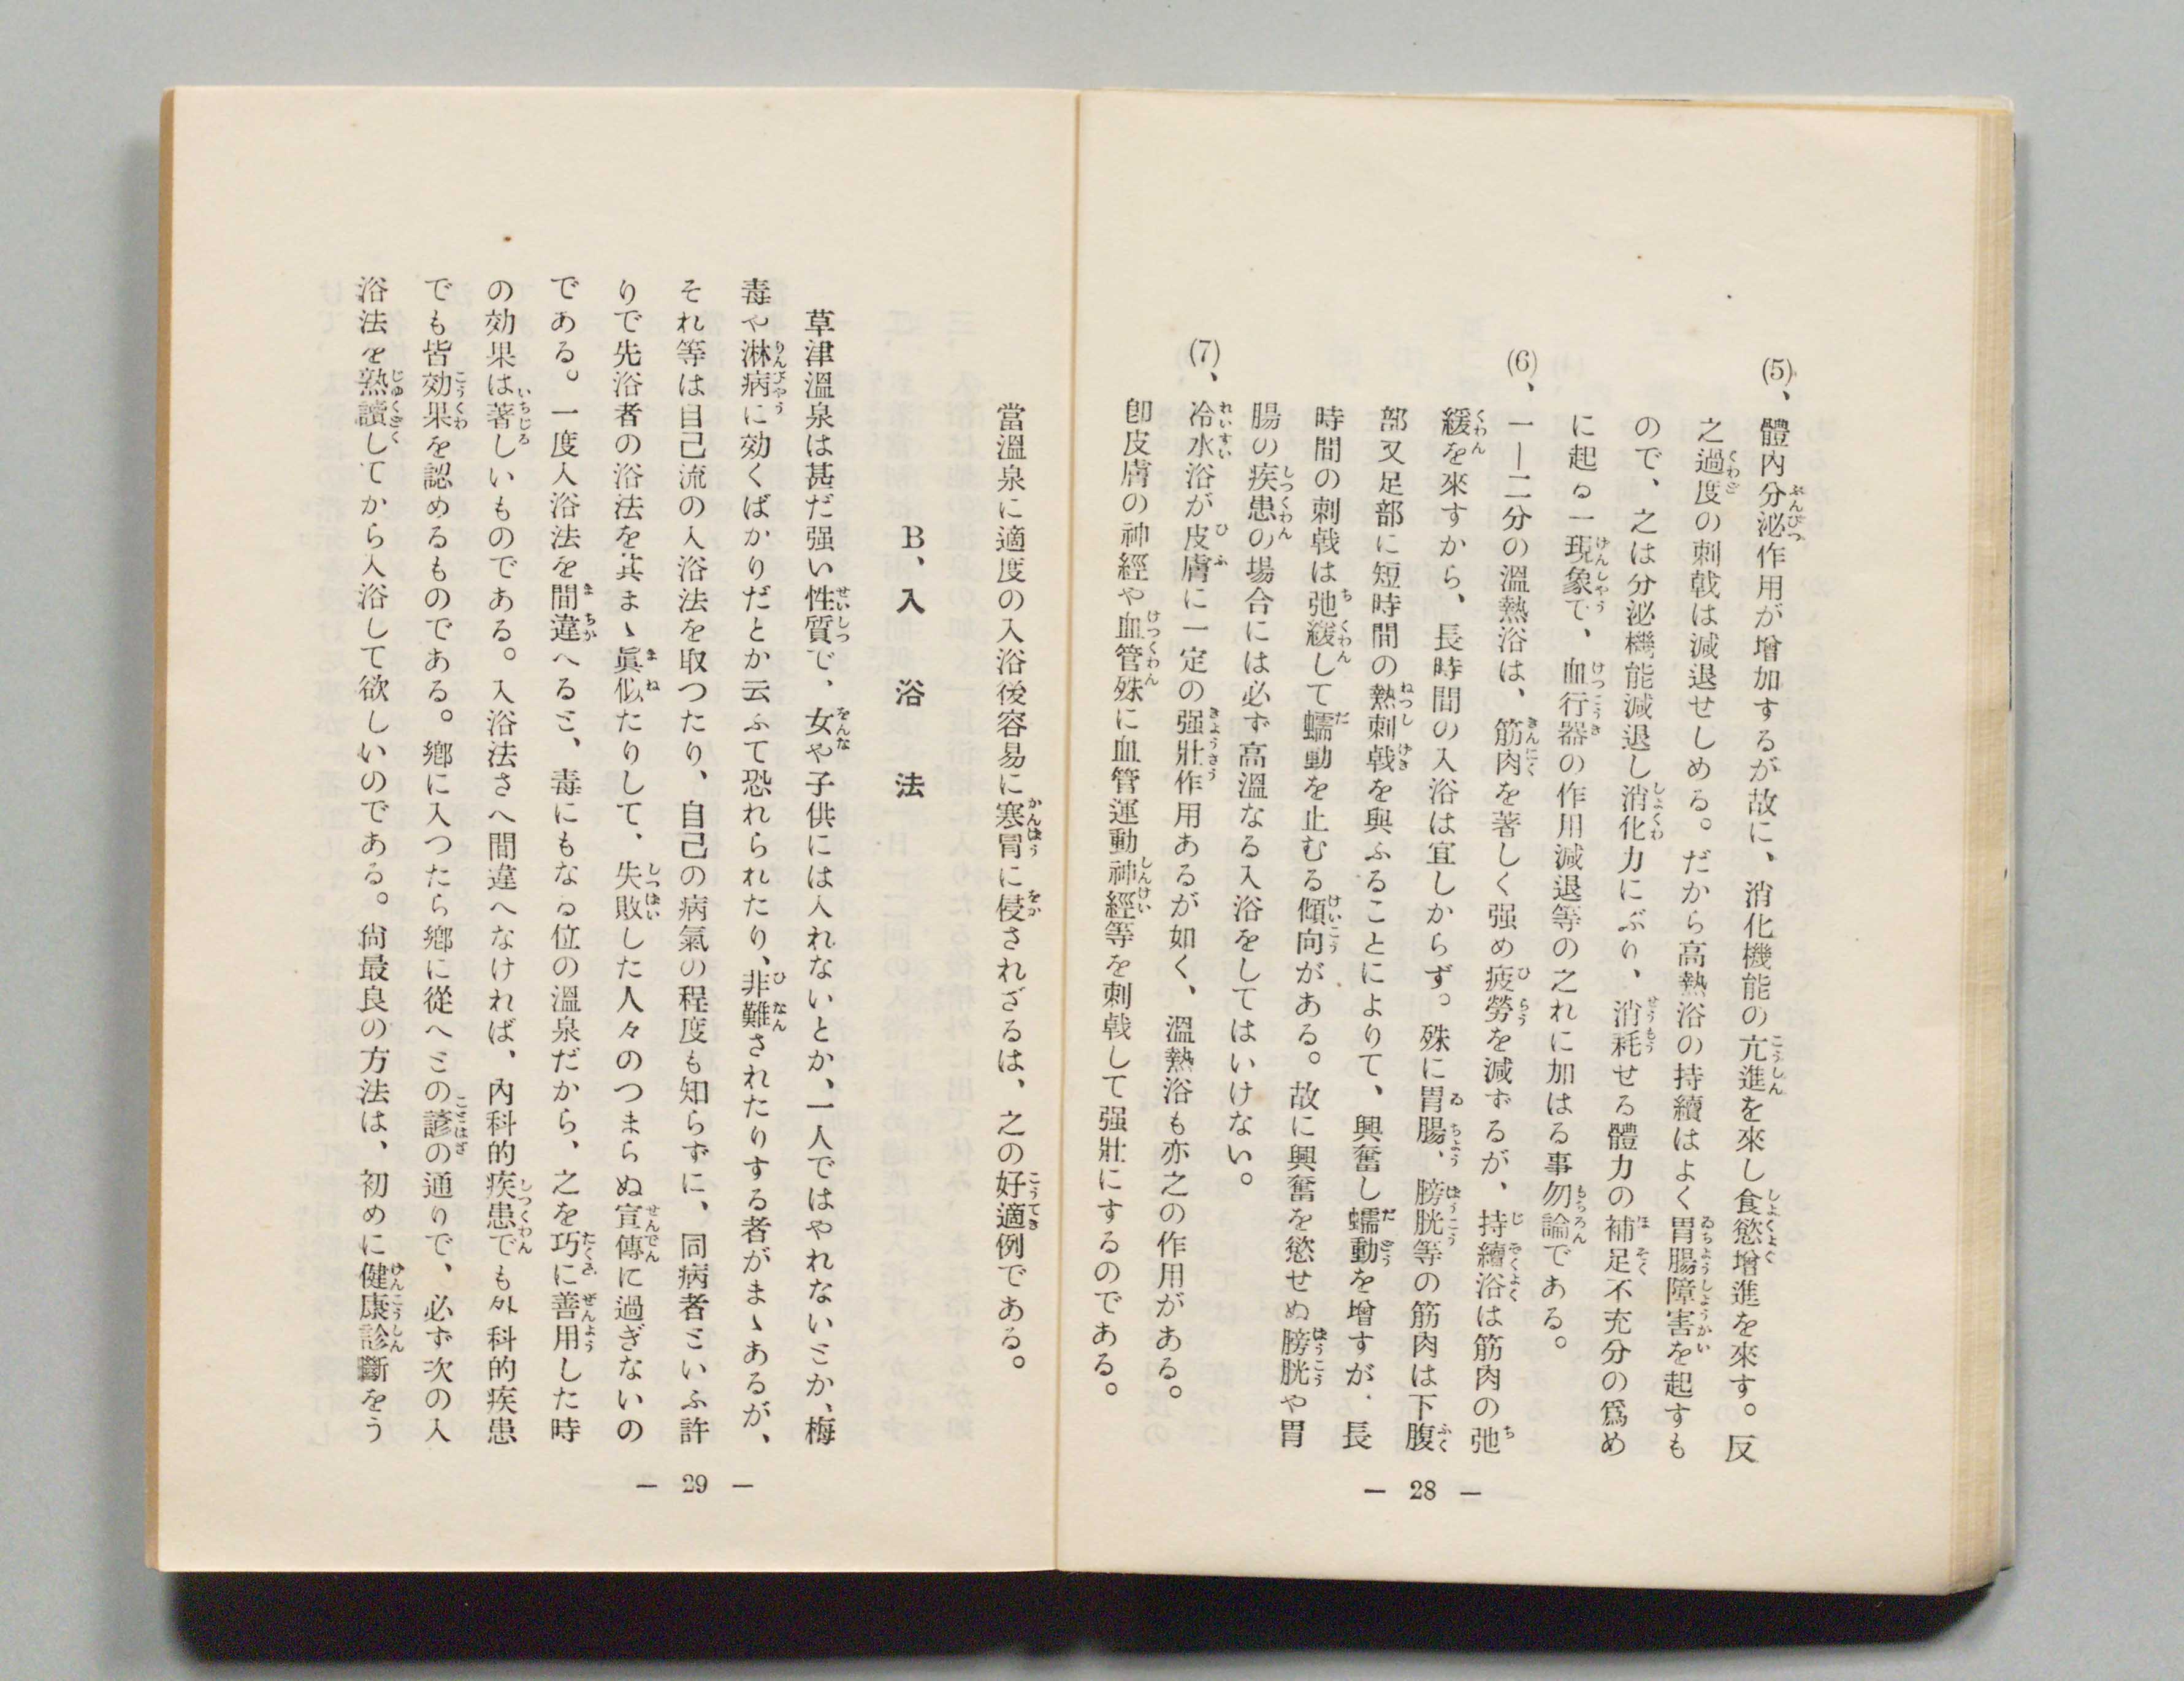 (5)、體內分泌作用が增加するが故に、消化機能の亢進を來し食慾增進を來す。反
之過度の刺戟は減退せしめる。だから高熱浴の持續はよく胃腸障害を起すも
ので、之は分泌機能減退し消化力にぶり、消耗せる體力の補足不充分の爲め
に起る一現象で、血行器の作用減退等の之れに加はる事勿論である。
(6)、一―二分の溫熱浴は、筋肉を著しく强め疲勞を減ずるが、持續浴は筋肉の弛
緩を來すから、長時間の入浴は宜しからず。殊に胃腸、膀胱等の筋肉は下腹
部又足部に短時間の熱刺戟を與ふることによりて、興奮し蠕動を增すが、長
時間の刺戟は弛緩して蠕動を止むる傾向がある。故に興奮を慾せぬ膀胱や胃
腸の疾患の場合には必ず高溫なる入浴をしてはいけない。
(7)、冷水浴が皮膚に一定の强壯作用あるが如く、溫熱浴も亦之の作用がある。
卽皮膚の神經や血管殊に血管運動神經等を刺戟して强壯にするのである。
― 28 ―
當溫泉に適度の入浴後容易に寒冒に侵されざるは、之の好適例である。
B、入浴法
草津溫泉は甚だ强い性質で、女や子供には入れないとか、一人ではやれないとか、梅
毒や淋病に効くばかりだとか云ふて恐れられたり、非難されたりする者がまゝあるが、
それ等は自己流の入浴法を取つたり、自己の病氣の程度も知らずに、同病者といふ許
りで先浴者の浴法を其まゝ眞似たりして、失敗した人々のつまらぬ宣傳に過ぎないの
である。一度入浴法を間違へると、毒にもなる位の溫泉だから、之を巧に善用した時
の効果は著しいものである。入浴法さへ間違へなければ、內科的疾患でも外科的疾患
でも皆効果を認めるものである。鄕に入つたら鄕に從へとの諺の通りで、必ず次の入
浴法を熟讀してから入浴して欲しいのである。尙最良の方法は、初めに健康診斷をう
― 29 ―